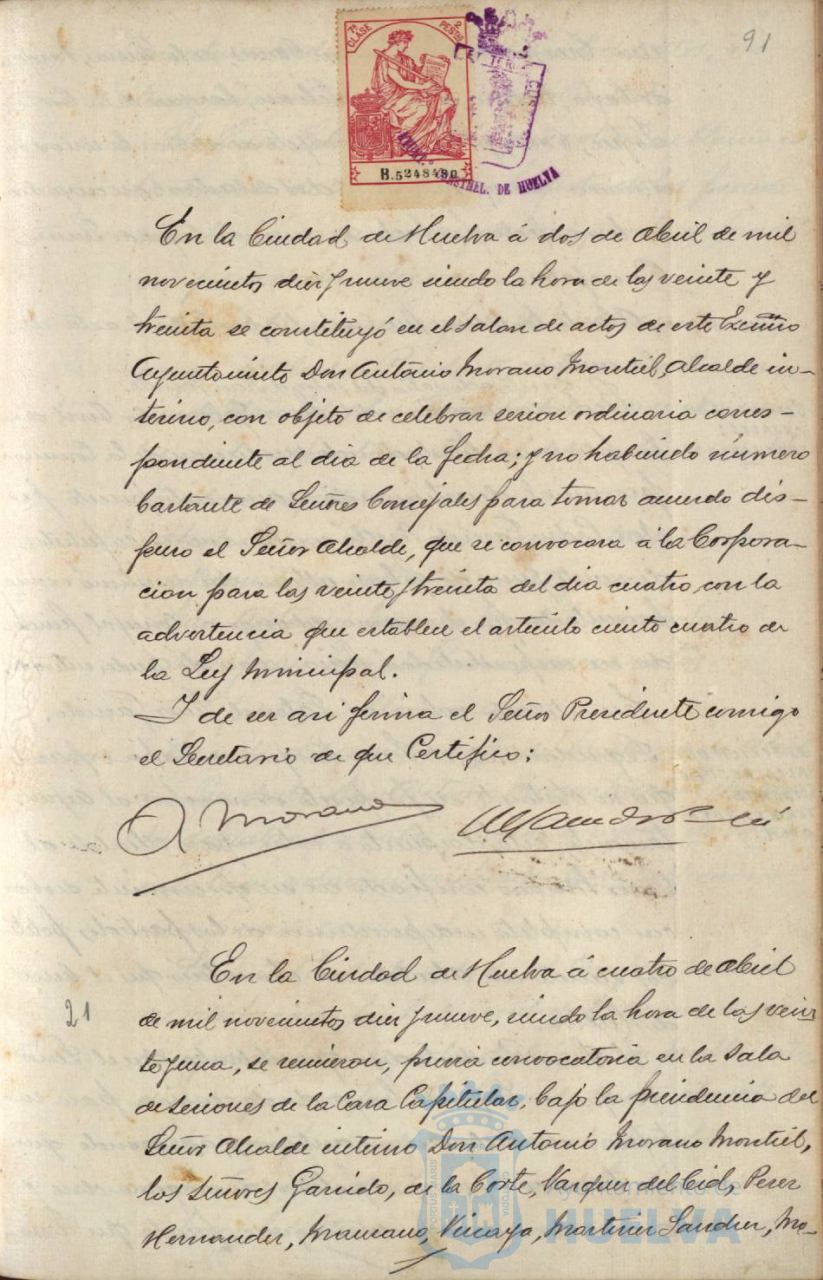 91
7ª CLASE 2 PESETAS
B.5248480
DE HUELVA
En la Ciudad de Huelva á dos de Abril de mil
novecientos diez y nueve siendo la hora de las veinte y
treinta se constituyó en el salon de actos de este Excmo
Ayuntamiento Don Antonio Morano Montiel, Alcalde in-
terino, con objeto de celebrar sesion ordinaria corres-
pondiente al dia de la fecha; y no habiendo número
bastante de Señores Concejales para tomar acuerdo dis-
puso el Señor Alcalde, que se convocara á la Corpora-
cion para las veinte y treinta del dia cuatro, con la
advertencia que establece el artículo ciento cuatro de
la Ley Municipal.
Y de ser asi firma el Señor Presidente comigo
el Secretario de que Certifico:
A Morano
En la Ciudad de Huelva á cuatro de Abril
21
de mil novecientos diez y nueve, siendo la hora de las vein-
te y una, se reunieron, previa convocatoria en la Sala
de sesiones de la Casa Capitular, bajo la presidencia del
Señor Alcalde interino Don Antonio Morano Montiel,
los señores Garrido, de la Corte, Vazquez del Cid, Perez
Hernandez, Manzano, Vizcaya, Martinez Sanchez, Mo-
HUELVA